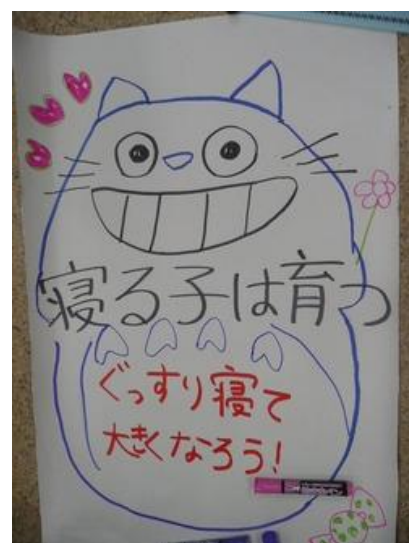 寝る子は育つ
ぐっすり寝て
大きくなろう!